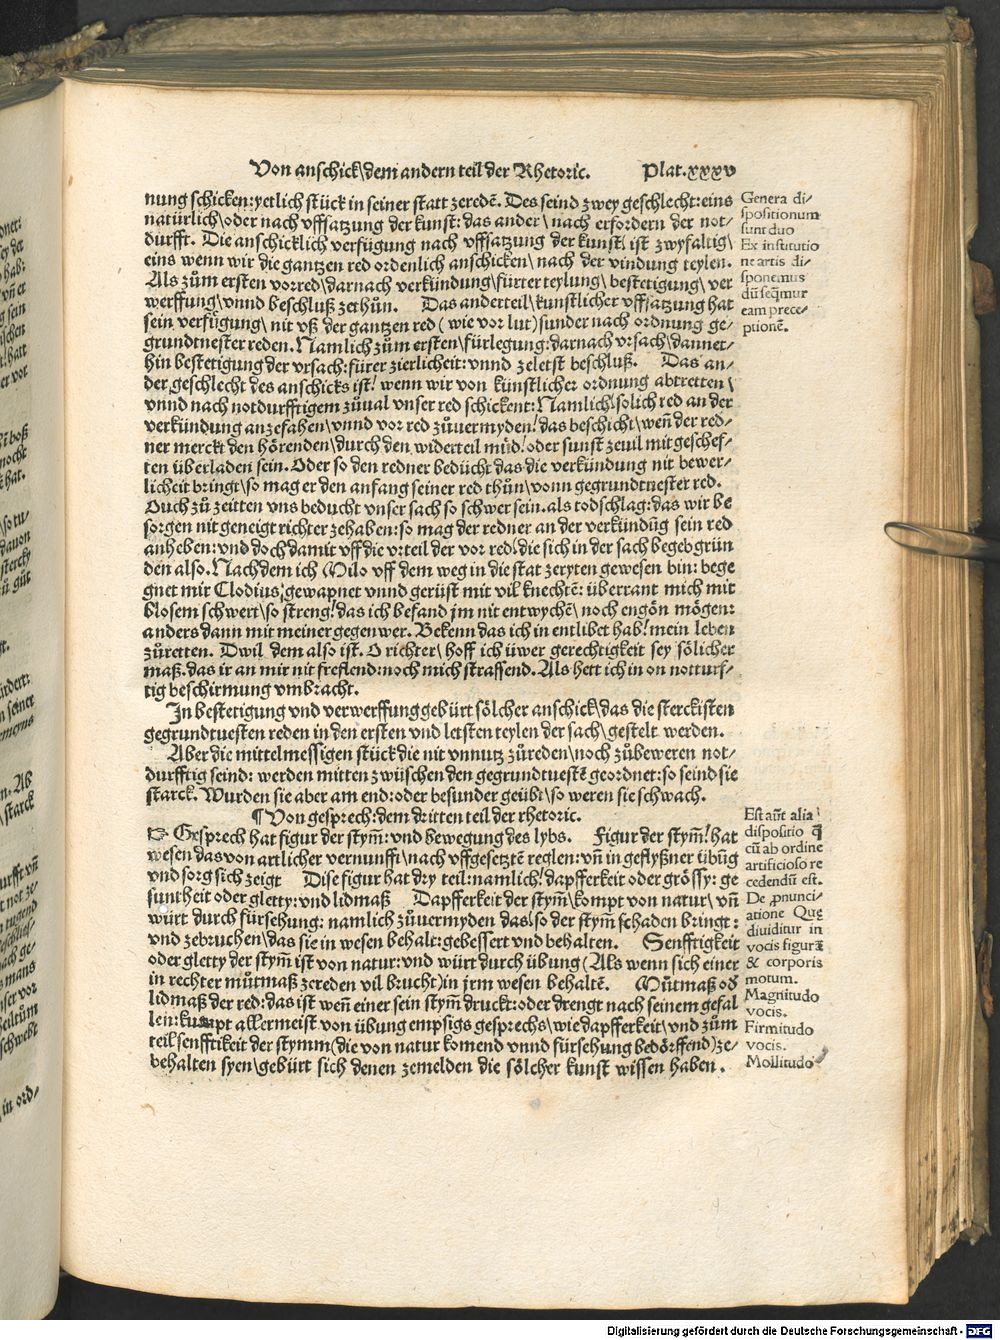 Von anschick\dem andern teil der Rhetoric. Plat.xxxv
nung schicken:yetlich stück in seiner statt zeredē. Des seind zwey geschlecht:eins
natürlich\oder nach vffsatzung der kunst:das ander\ nach erfordern der not-
durfft. Die anschicklich verfügung nach vffsatzung der kunst\ ist zwyfaltig\
eins wenn wir die gantzen red ordenlich anschicken\ nach der vindung teylen.
Als zům ersten vorred\darnach verkündung\fürter teylung\bestetigung\ ver
werffung\vnnd beschluß zethůn. Das anderteil\kunstlicher vffsatzung hat
sein verfügung\ nit vß der gantzen red ( wie vor lut)sunder nach ordnung ge-
grundtnester reden.Namlich zům ersten\fürlegung:darnach vrsach\dannet-
hin bestetigung der vrsach:fürer zierlicheit:vnnd zeletst beschluß. Das an-
der geschlecht des anschicks ist! wenn wir von künstlicher ordnung abtretten\
vnnd nach notdurfftigem zůual vnser red schickent:Namlich\solich red an der
verkündung anzefahen\vnnd vor red zůuermyden!das beschicht\wen̄ der red-
ner merckt den hörenden\durch den widerteil můd!oder sunst zeuil mit geschef-
ten überladen sein.Oder so den redner bedücht das die verkündung nit bewer-
licheit bringt\so mag er den anfang seiner red thůn\vonn gegrundtnester red.
Ouch zů zeitten vns beducht vnser sach so schwer sein.als todschlag:das wir be
sorgen nit geneigt richter zehaben:so mag der redner an der verkündūg sein red
anheben:vnd doch damit vff die vrteil der vor red\die sich in der sach begeb grün
den also.Nachdem ich Milo vff dem weg in die stat zeryten gewesen bin:bege
gnet mir Clodius\gewapnet vnnd gerüst mit vil knechtē: überrant mich mit
blosem schwert\so streng!das ich befand jm nit entwychē\noch engōn mögen:
anders dann mit meiner gegenwer. Bekenn das ich in entlibet hab!mein leben
zůretten. Dwil dem also ist. O richter\ hoff ich üwer gerechtigkeit sey sölicher
maß.das ir an mir nit freflend:noch mich straffend.Als hett ich in on notturf-
tig beschirmung vmbracht.
In bestetigung vnd verwerffung gebürt sölcher anschick\das die sterckisten
gegrundtuesten reden in den ersten vnd letsten teylen der sach\gestelt werden.
Aber die mittelmessigen stück die nit vnnutz zůreden\noch zůbeweren not-
durfftig seind: werden mitten zwüschen den gegrundtuestē geordnet:so seind sie
starck. Wurden sie aber am end:oder besunder geübt\so weren sie schwach.
¶Von gesprech:dem dritten teil der rhetoric.
☞ Gesprech hat figur der stym̄:vnd bewegung des lybs. Figur der stym̄!hat
wesen das von artlicher vernunfft\nach vffgesetztē reglen:vn̄ in geflyßner übūg
vnd sorg sich zeigt Dise figur hat dry teil:namlich!dapfferkeit oder grössy: ge
suntheit oder gletty:vnd lidmaß Dapfferkeit der stym̄\kompt von natur\ vn̄
würt durch fürsehung: namlich zůuermyden das\so der stym̄ schaden bringt:
vnd zebruchen\das sie in wesen behalt:gebessert vnd behalten. Senfftigkeit
oder gletty der stym̄ ist von natur:vnd würt durch übung(Als wenn sich einer
in rechter můtmaß zereden vil brucht)in jrm wesen behaltē. Můtmaß od̄
lidmaß der red:das ist wen̄ einer sein stym̄ druckt:oder drengt nach seinem gefal
len:kumpt allermeist von übung empsigs gesprechs\wie dapfferkeit\vnd zům
teil senfftikeit der stymm(die von natur komend vnnd fürsehung bedörffend)ze-
behalten syen\gebürt sich denen zemelden die sölcher kunst wissen haben.
Genera di-
spositionum
sunt duo
Ex institutio
ne artis di-
sponemus
dū seq̄mur
eam prece-
ptionē.
Est aūt alia
dispositio q̄
cū ab ordine
artificioso re
cedendū est.
De ꝓnunci-
atione Que
diuiditur in
vocis figurā
& corporis
motum.
Magnitudo
vocis.
Firmitudo
vocis.
Mollitudo
Digitalisierung gefördert durch die Deutsche Forschungsgemeinschaft - DFG